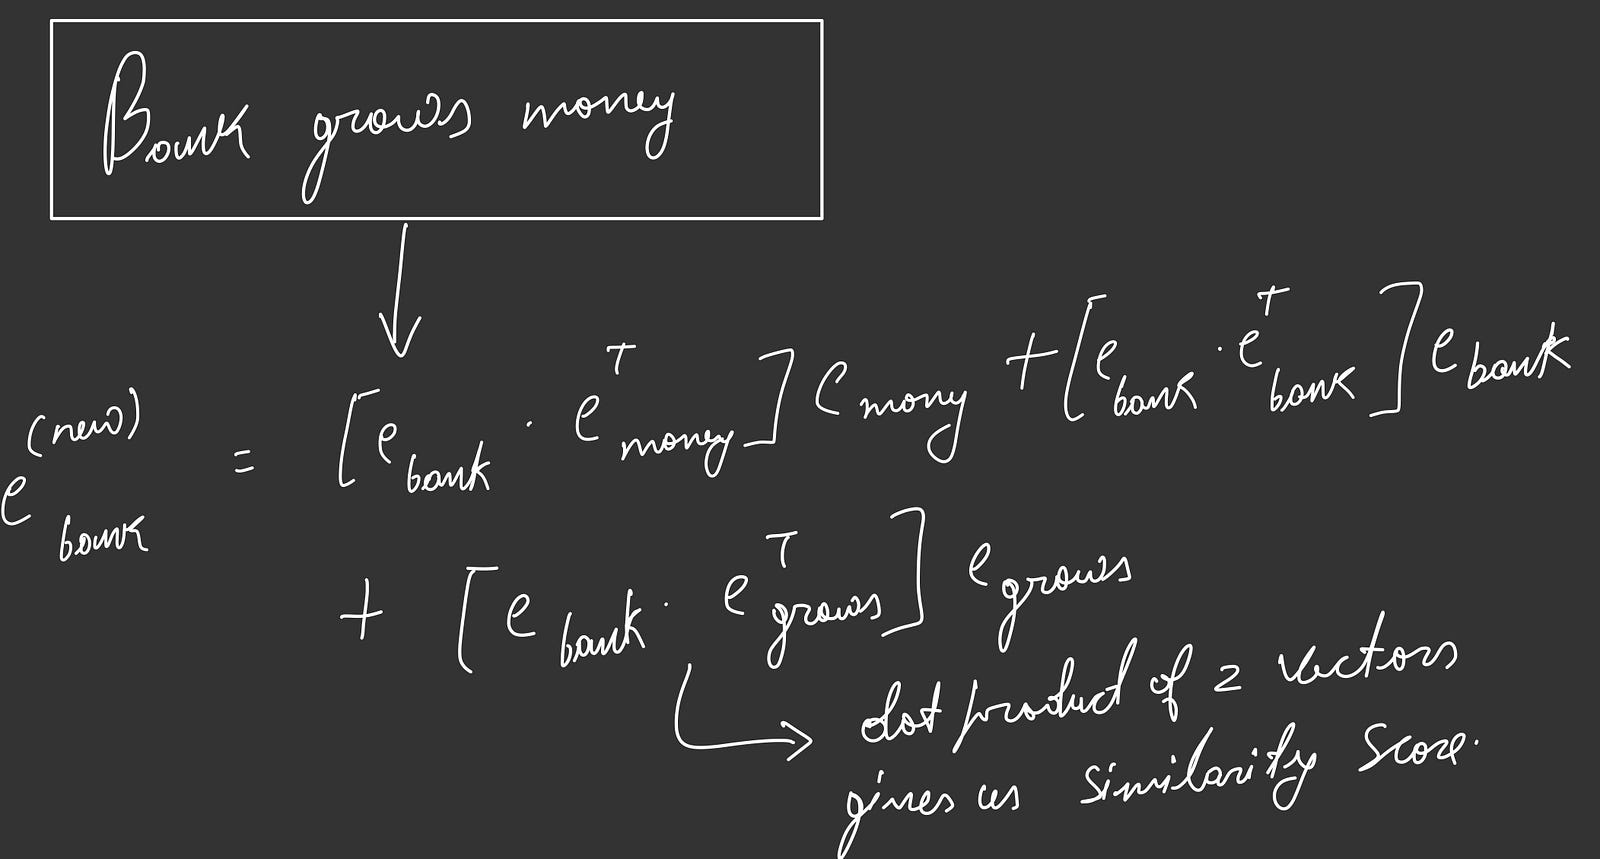 Bank grows money
e_bank^(new) = [e_bank · e^T_money] e_mony + [e_bank · e^T_bank] e_bank
+ [e_bank · e^T_grows] e_grows
dot product of 2 vectors
gives us similarity score.